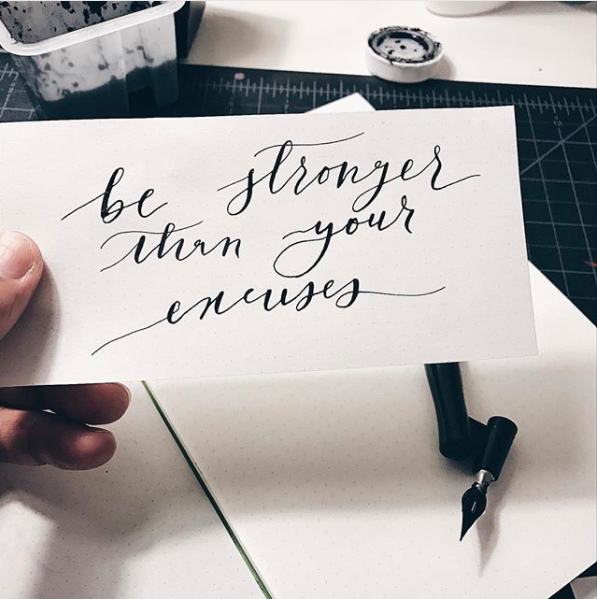 be stronger
than your
excuses